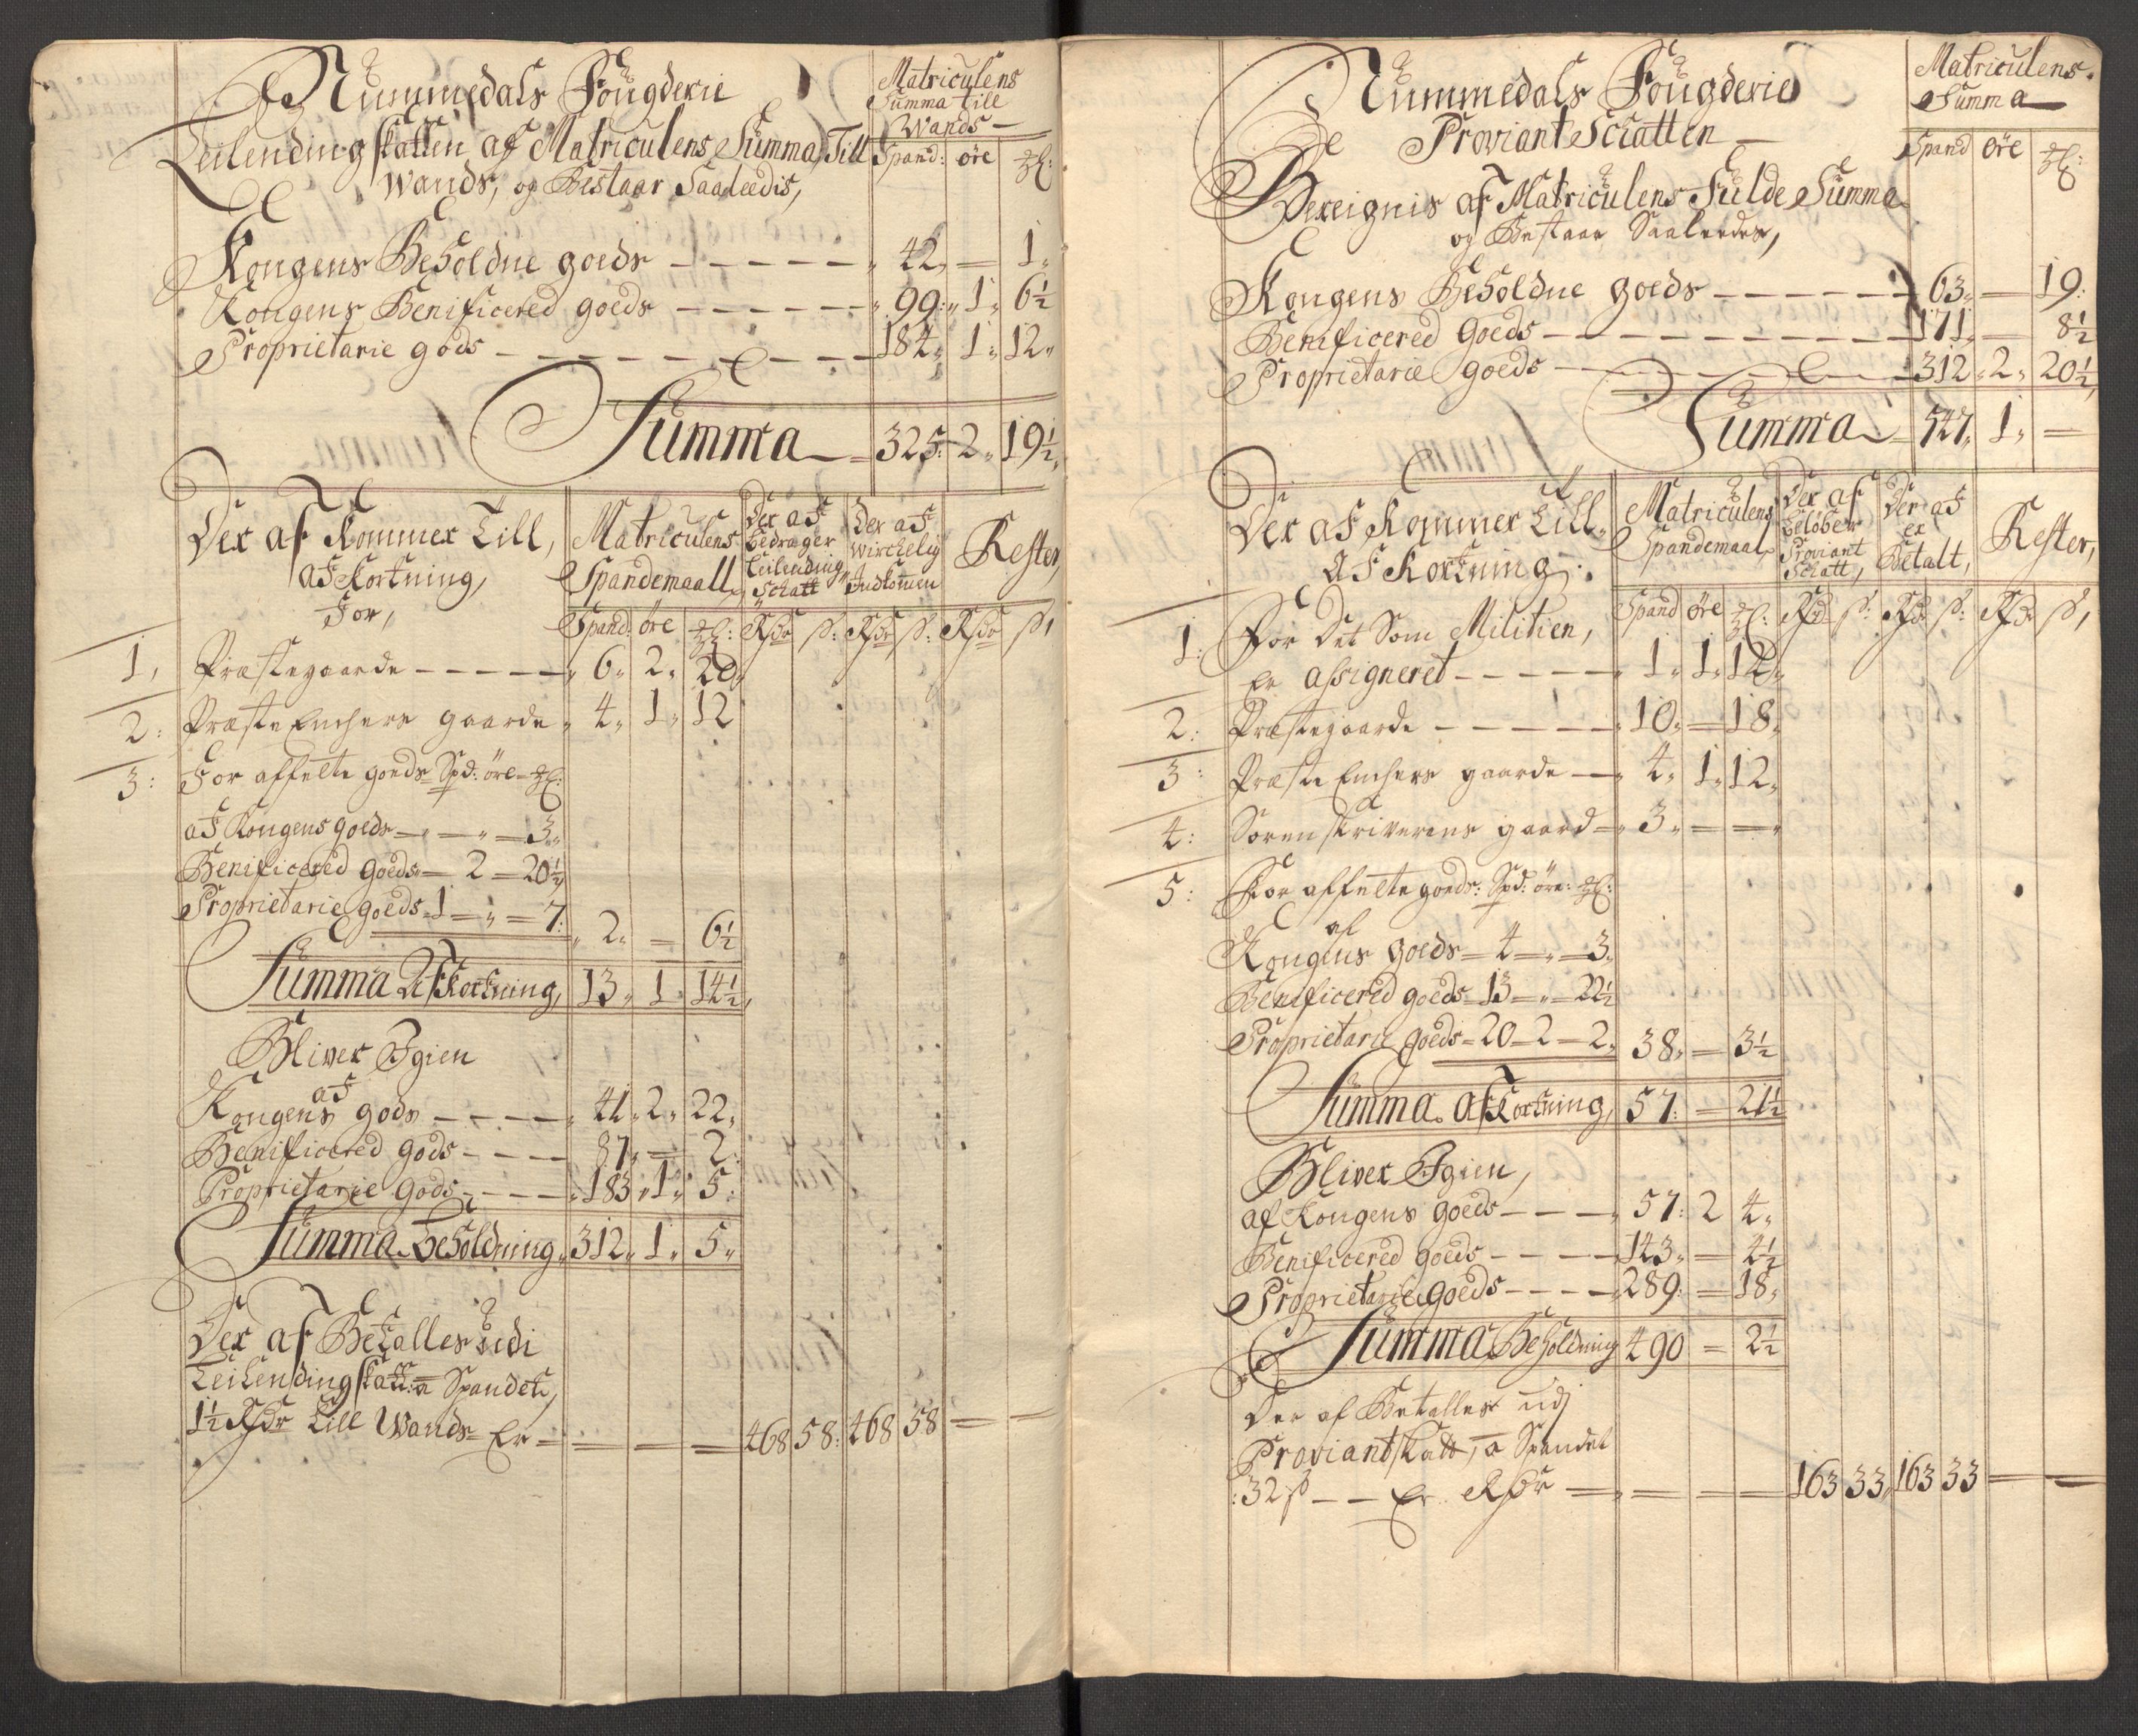 Nummedals Fougderie
Leilending skatten af Matriculens Summa Till
Wands, og Bestaar Saaledis,
Matriculens
Summa till
Wands
Spand: öre
Kongens Beholdne goeds 42 — 1
Kongens Benificered goeds 99 1 6½
Proprietarie gods 184 1 12
Summa 325 2 19½
Der af Kommer Till,
af Kortning,
For,
Matriculens
Spandemaall
Der af
bedrager
Leilending
Schatt
Der af
Wirchelig
Indkommen
Rester,
Spand: öre Rdr ß: Rdr ß: Rdr ß,
1, Præstegaarde 6 2 20
2: Præste Enchers gaarde 4 1 12
3: For affelte goeds Spd: öre
af Kongens goeds — — 3
Benificered goeds — 2 — 20½
Proprietarie goeds 1 — 7: 2 — 6½
Summa Afkortning, 13 1 14½
Bliver Igien
af
Kongens gods 41 2 22
Benificered gods 87 — 2
Proprietarie gods 183 1 5
Summa Beholdning 312 1 5
Der af Betalles udi
Leilending skatt: a Spandet,
1½ Rdr Till Wands Er — — — 468 58: 468 58 — —
Nummedals Fougderie
De Proviant Schatten
Bereignis af Matriculens Fulde Summa
og Bestaar Saaledes,
Matriculens
Summa
Spand öre
Kongens Beholdne goeds 63 — 19:
Benificered goeds 171 — 8½
Proprietarie goeds 312 2 20½
Summa 547 1 —
Der af Kommer Till
Af Kortning
Matriculens
Spandemaal
Der af
beløber
Proviant
Schatt,
Der af
er
Betalt,
Rester,
Spand öre Rdr ß: Rdr ß: Rdr ß,
1: For Det Som Militien,
Er assigneret 1 1 12
2: Præstegaarde 10 — 18
3: Præste Enchers gaarde 4 1 12
4: Sorenskriverens gaard 3 — —
5: For affelte goeds: Spd: öre:
af
Kongens goeds 4 — 3
Benificered goeds 13 — 22½
Proprietarie goeds 20 2 2, 38 — 3½
Summa Af Kortning, 57: — 21½
Bliver Igien,
af Kongens goeds 57: 2 4
Benificered goeds 143 — 4½
Proprietarie goeds 289: — 18
Summa Beholdning 490 — 2½
Der af Betalles udj
Proviantskatt, a Spandet
32 ß Er Rdr — — — 163 33 163 33 — —